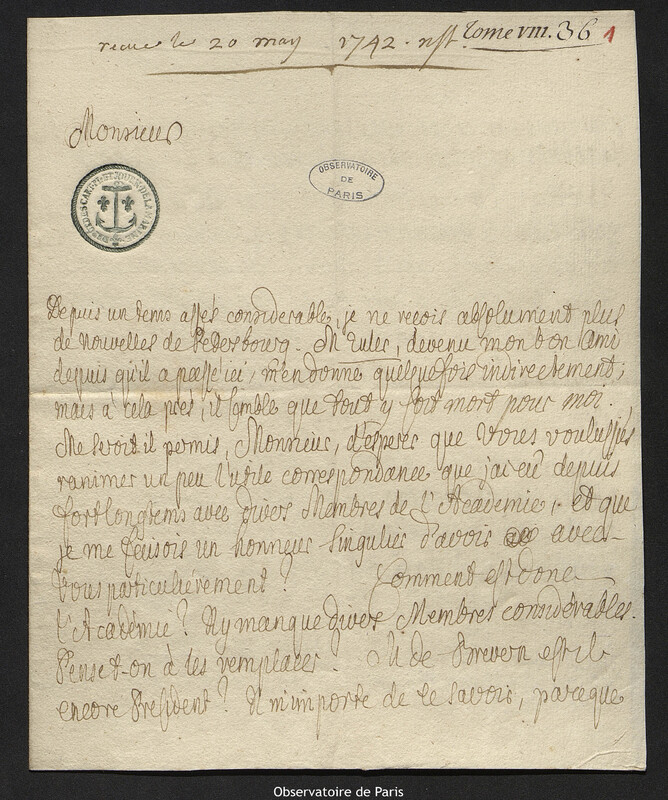 recue le 20 may 1742. nst. Tome VIII. 36 1
Monsieur
OBSERVATOIRE
DE
PARIS
Depuis un tems assés considerable, je ne reçois absolument plus
de nouvelles de Petersbourg. Mr Euler, devenu mon bon Ami
depuis qu'il a passé ici, m'en donne quelquefois indirectement;
mais à cela près, il semble que tout y soit mort pour moi.
Me seroit il permis, Monsieur, d'esperer que Vous voulussiés
ranimer un peu l'utile correspondance que j'ai eu depuis
fort longtems avec divers Membres de l'Academie, et que
je me faisois un honneur singulier d'avoir avec
Vous particuliérement? Comment est donc
l'Académie? Il y manque divers Membres considérables.
Pense t-on à les remplacer. M. de Brevern est il
encore President? Il m'importe de le savoir, parce que
Observatoire de Paris